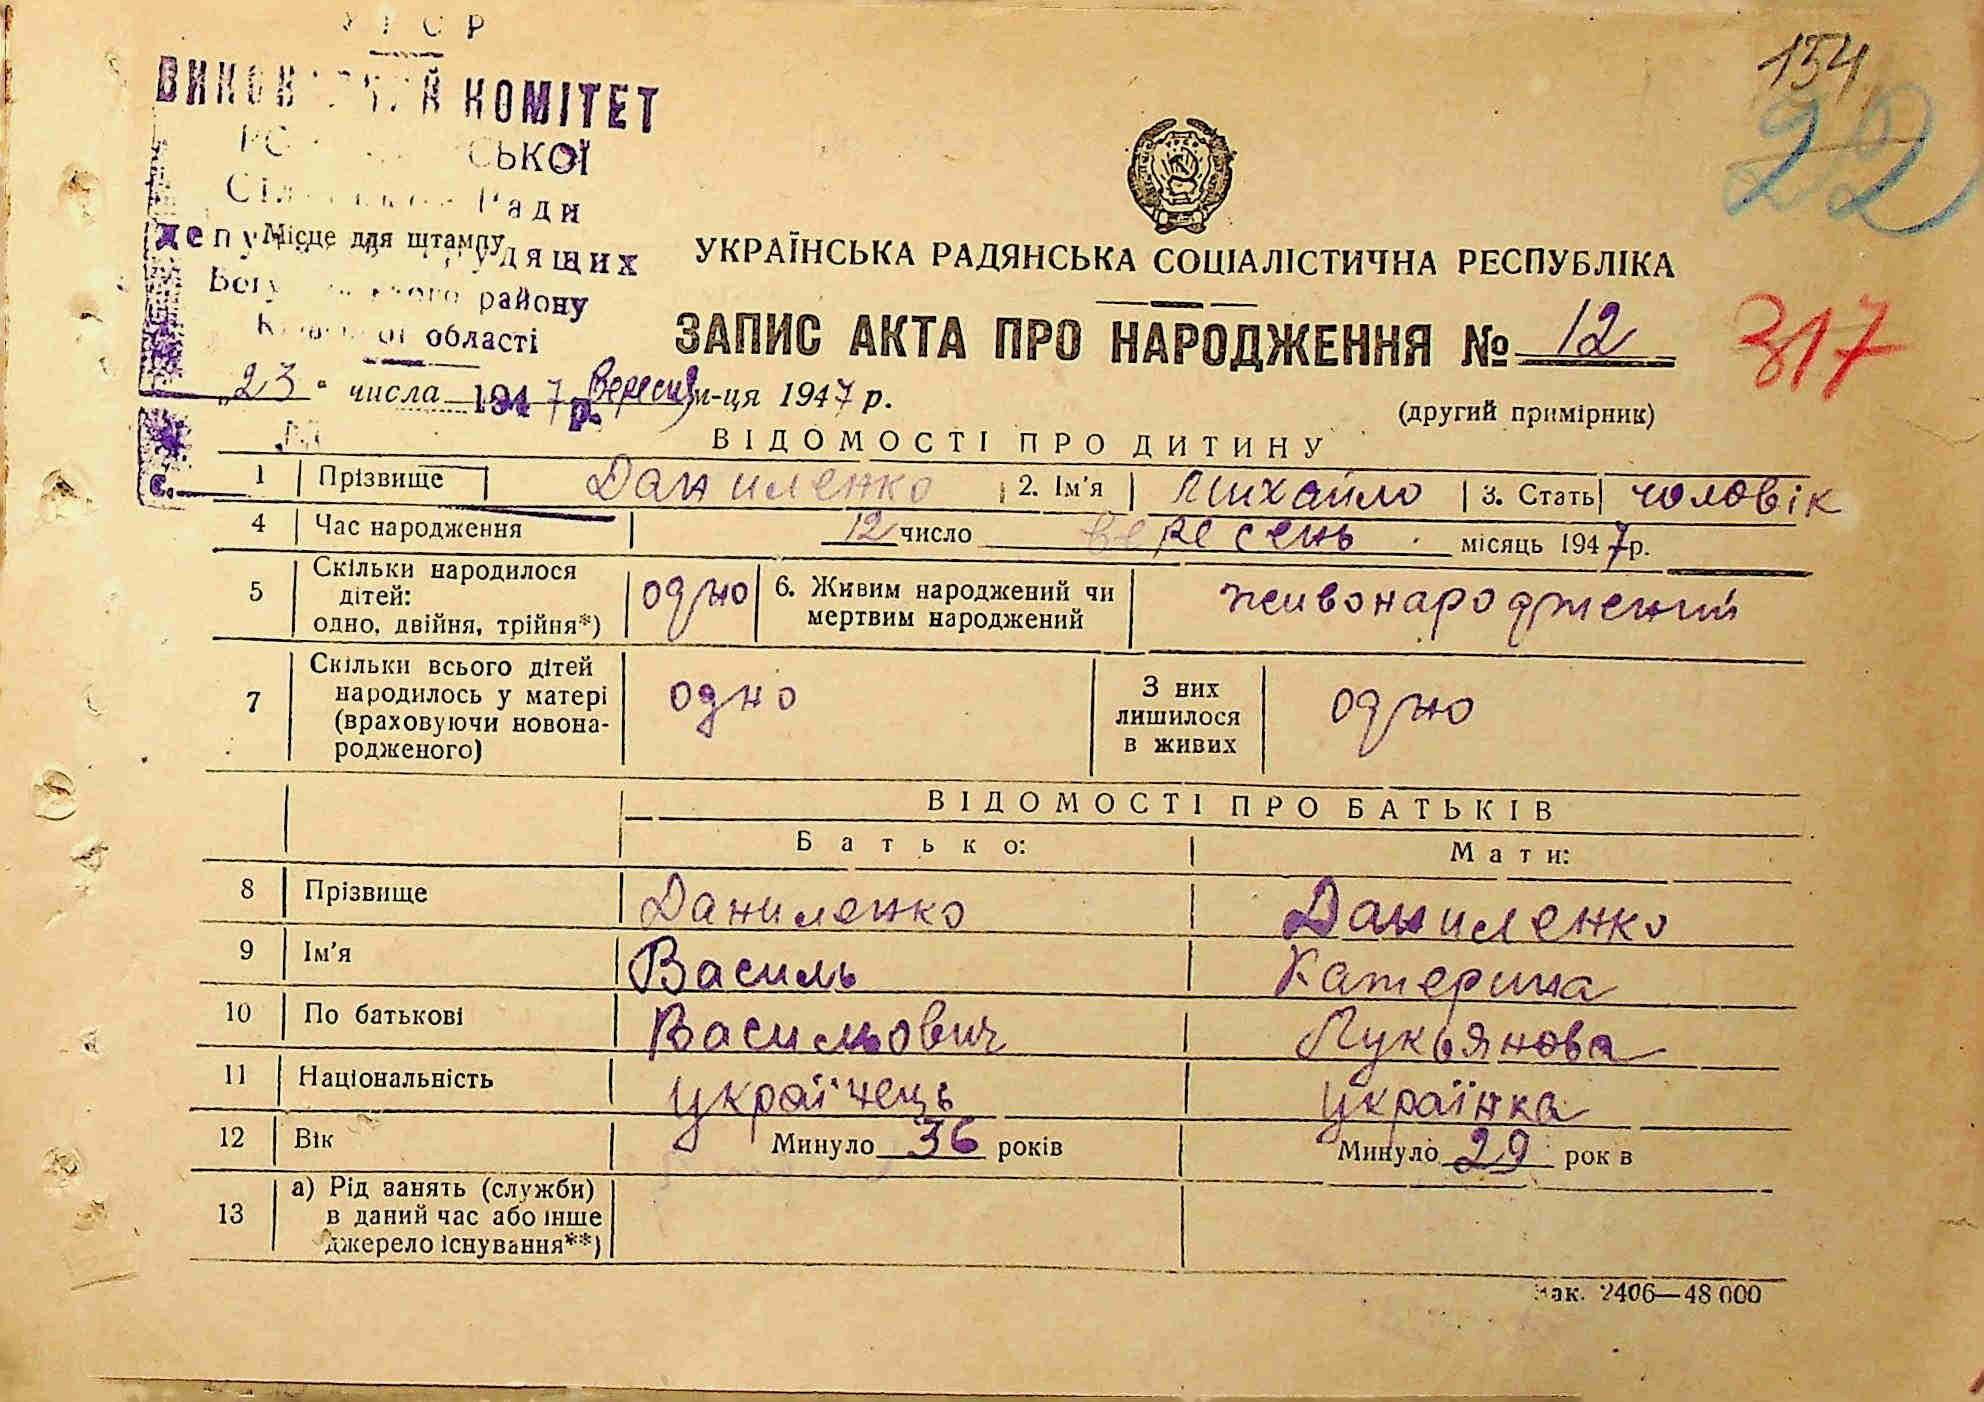 УРСР
ВИКОНАВЧИЙ КОМІТЕТ
СЬКОЇ
Сільської Ради
депутатів трудящих
Місце для штампу
району
області
1947 р.
УКРАЇНСЬКА РАДЯНСЬКА СОЦІАЛІСТИЧНА РЕСПУБЛІКА
154
22
ЗАПИС АКТА ПРО НАРОДЖЕННЯ № 12
317
„23“ числа вересня м-ця 1947 р.
(другий примірник)
ВІДОМОСТІ ПРО ДИТИНУ
1 Прізвище Даниленко 2. Ім'я Михайло 3. Стать чоловік
4 Час народження 12 число вересень місяць 1947 р.
5 Скільки народилося дітей: одно, двійня, трійня*) одно 6. Живим народжений чи мертвим народжений живонароджений
7 Скільки всього дітей народилось у матері (враховуючи новонародженого) одно З них лишилося в живих одно
ВІДОМОСТІ ПРО БАТЬКІВ
Батько: Мати:
8 Прізвище Даниленко Даниленко
9 Ім'я Василь Катерина
10 По батькові Васильович Лукьянова
11 Національність українець українка
12 Вік Минуло 36 років Минуло 29 рок в
13 а) Рід занять (служби) в даний час або інше джерело існування**)
Зак. 2406—48 000